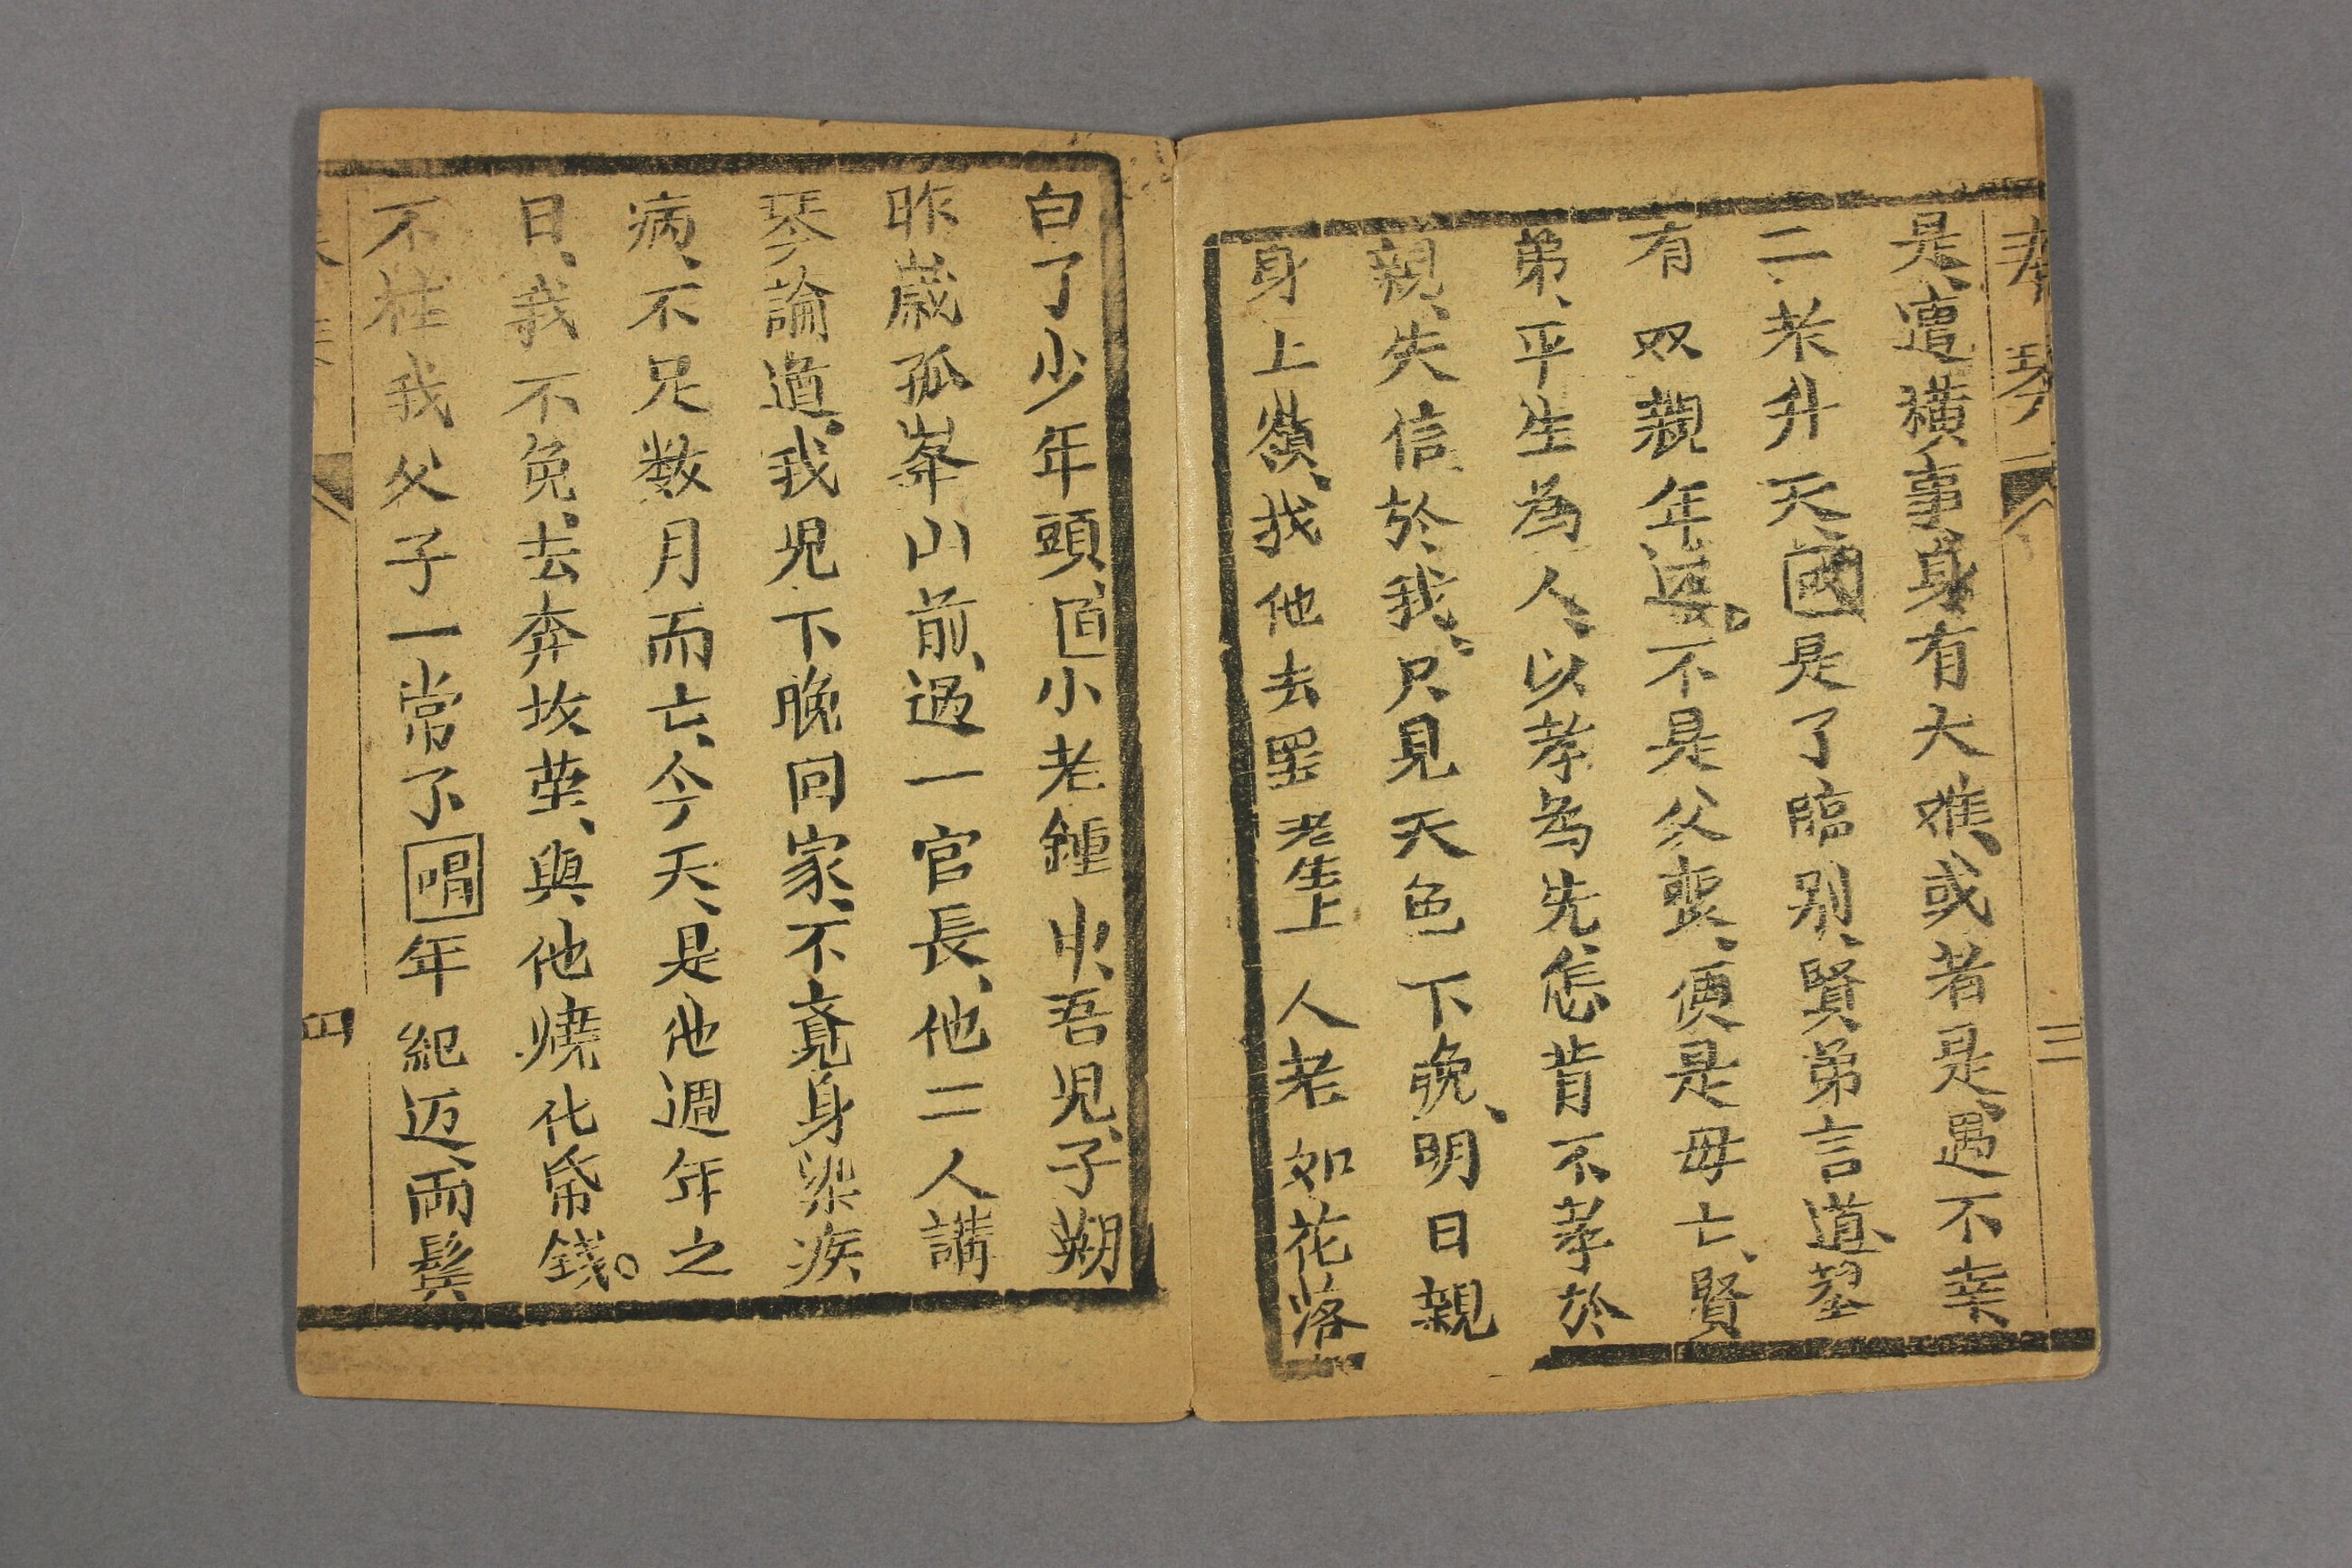 琴
三
是、遭橫事、身有大难、或者是、遇不幸
二、老升天、國是了臨别、賢弟言道、堂
有双親年邁。不是父喪、便是毋亡、賢
弟、平生為人、以孝為先、怎肯不孝於
親、失信於我、只見天色下晚、明日親
身上嶺、找他去罢老生上人老如花落
白了少年頭、白小老鍾 吾児、子期
昨歲孤峯山前、遇一官長、他二人講
琴論道、我児下晚回家、不覔身染疾
病、不足数月而亡、今天、是他週年之
日、我不免、去奔坟茔、與他燒化帋錢。
不枉我父子一常了唱年紀迈、両鬓
四